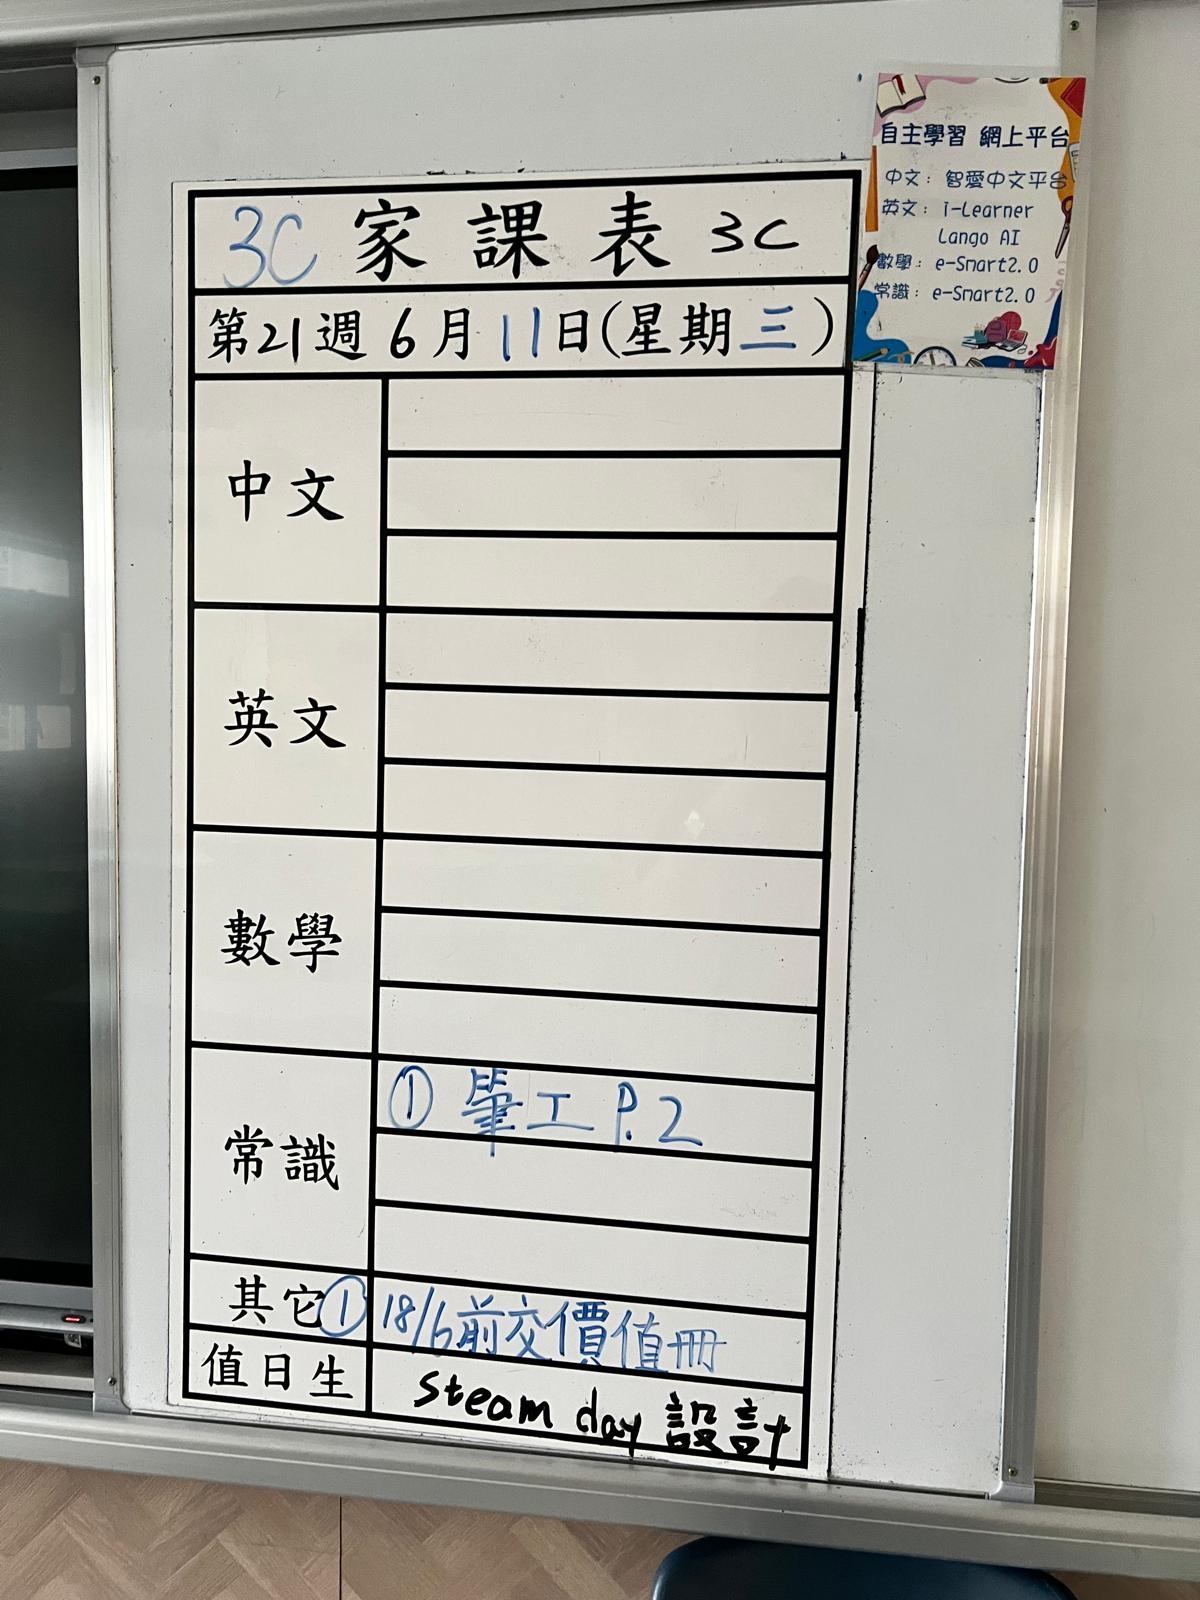 自主學習 網上平台
中文：智愛中文平台
英文：i-Learner
Lango AI
數學：e-Smart2.0
常識：e-Smart2.0
3C 家課表 3C
第21週6月11日(星期三)
中文
英文
數學
常識
① 筆工 P.2
其它① 18/6前交價值冊
值日生
Steam day 設計